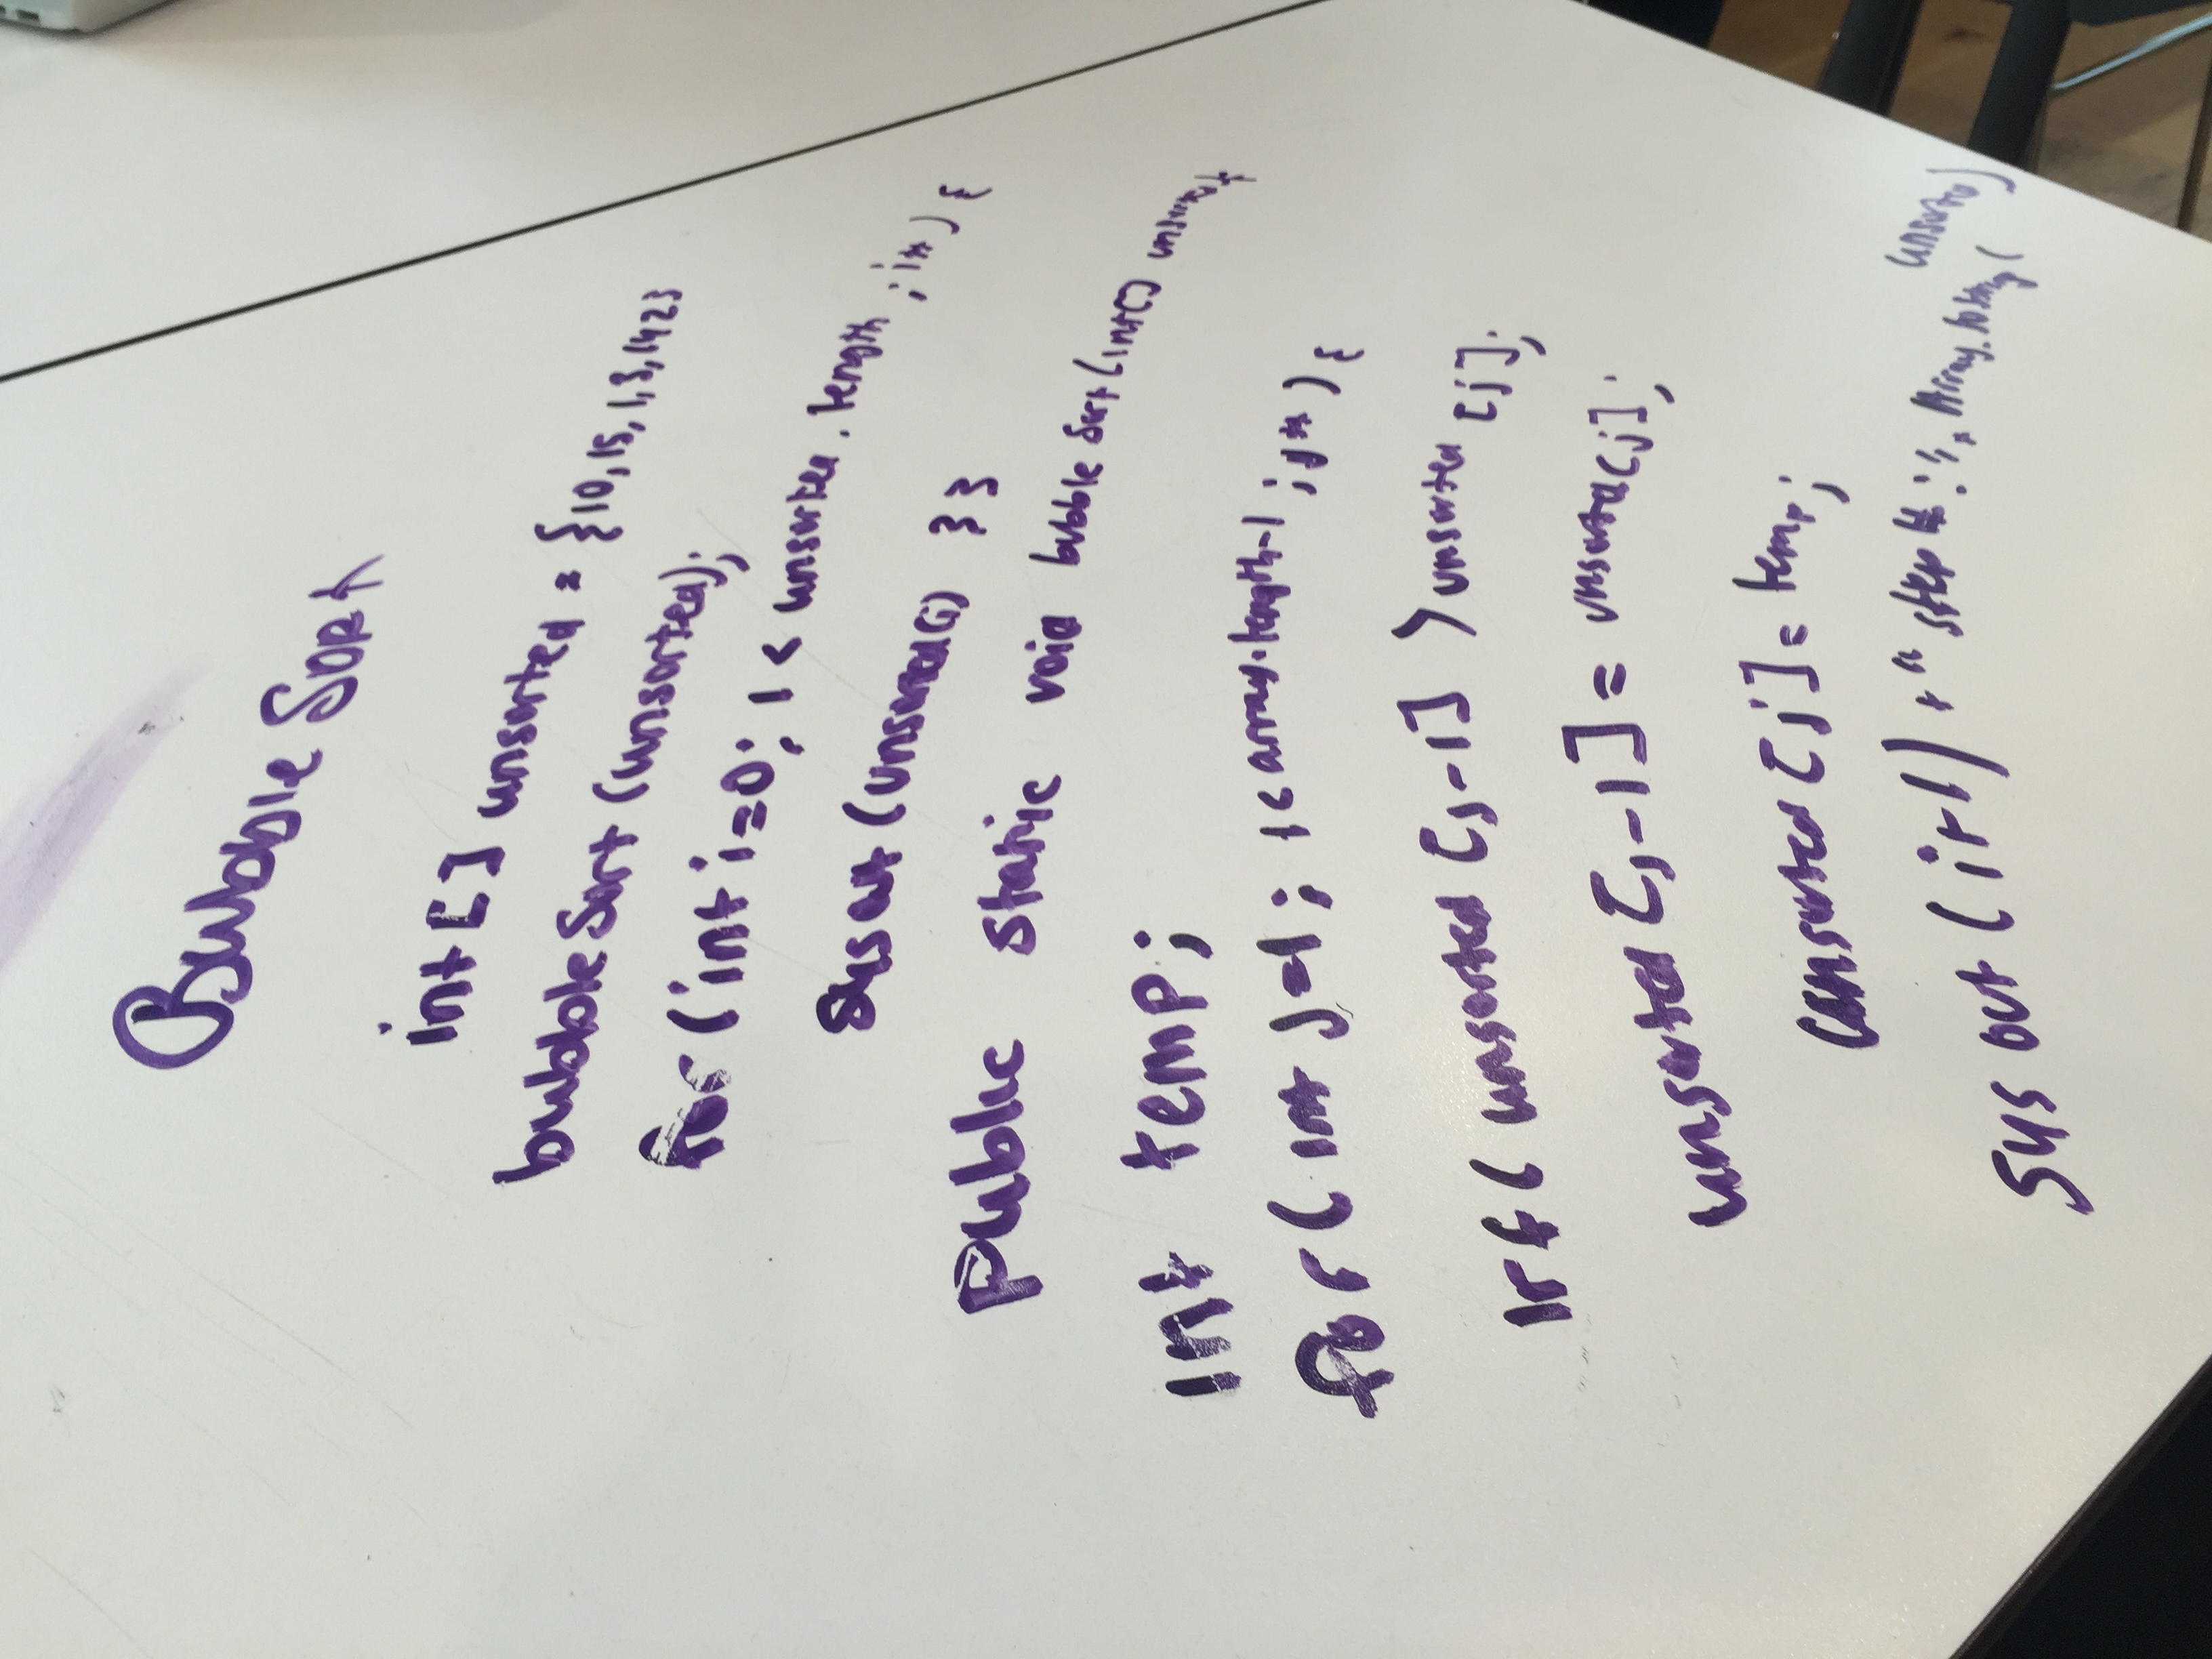 Bubble Sort
int [] unsorted = {10,15,1,3,142}
bubble Sort (unsorted);
for (int i=0; i < unsorted.length; i++) {
Sysout (unsorted(i) } }
public static void bubble Sort (int[] unsorted){
int temp;
for (int j=1; i< array.length-1; j++) {
if ( unsorted [j-1] > unsorted [j].;
unsorted [j-1] = unsorted[j];
unsorted [j] = temp;
Sys out (i+1) +" step
Array.toString(
unsorted)